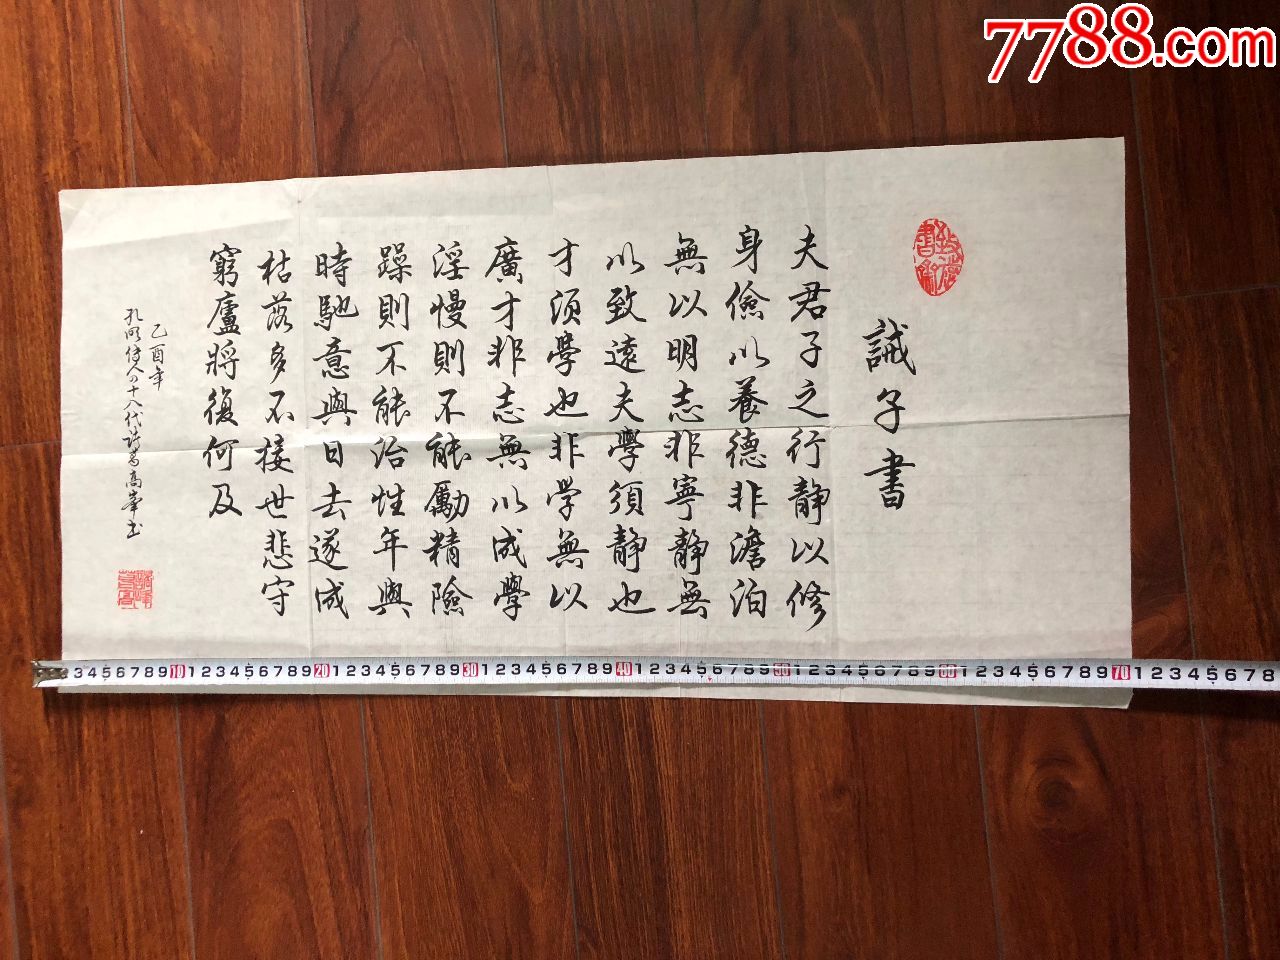 7788.com
誡子書
夫君子之行静以修
身儉以養德非澹泊
無以明志非寧静無
以致遠夫學須静也
才須學也非学無以
廣才非志無以成學
淫慢則不能勵精險
躁則不能治性年與
時馳意與日去遂成
枯落多不接世悲守
窮廬將復何及
乙酉年
孔明传人四十八代諸葛高峯书
3 4 5 6 7 8 9 10 1 2 3 4 5 6 7 8 9 20 1 2 3 4 5 6 7 8 9 30 1 2 3 4 5 6 7 8 9 40 1 2 3 4 5 6 7 8 9 50 1 2 3 4 5 6 7 8 9 60 1 2 3 4 5 6 7 8 9 70 1 2 3 4 5 6 7 8